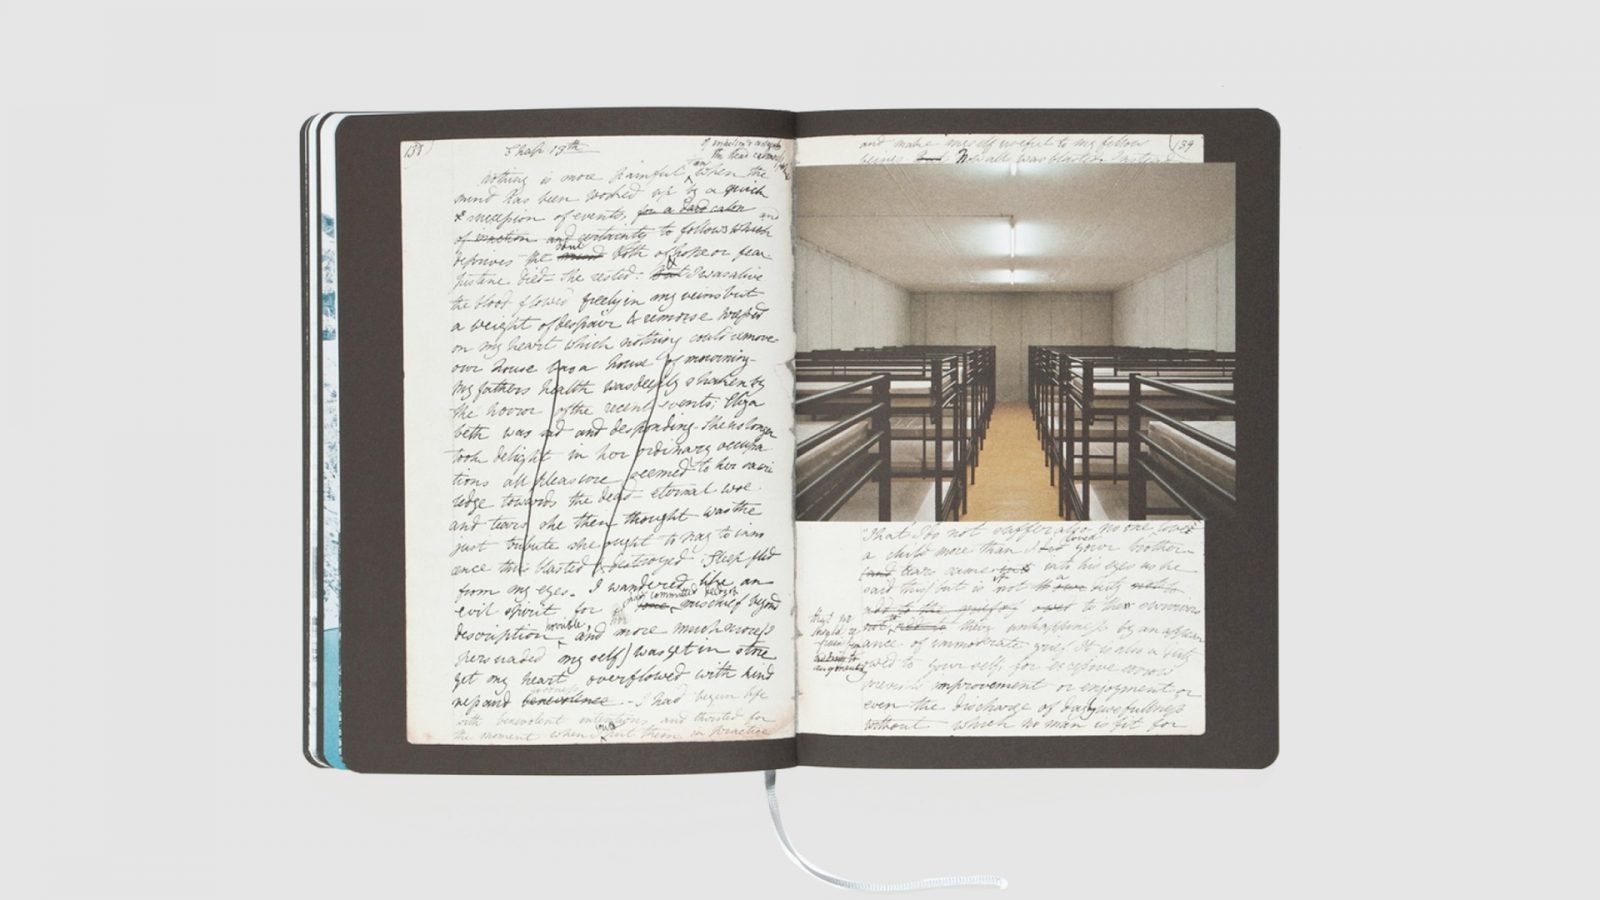 138) Chap 13th
the dead calmness
Nothing is more painful than when the
mind has been worked up by a quick
succession of events, for a dead calm and
of inaction and certainty to follows which
deprives the mind soul both of hope or fear
Justine died - she rested - But & I was alive
the blood flowed freely in my veins but
a weight of despair & remorse pressed
on my heart which nothing could remove
our house was a house of mourning
My fathers health was deeply shaken by
the horror of the recent events; Eliza
beth was sad and desponding. She no longer
took delight in her ordinary occupa
tions all pleasure seemed to her sacri
ledge towards the dead - eternal woe
and tears she then thought was the
just tribute she ought to pay to inno
cence thus blasted & destroyed. Sleep fled
from my eyes. I wandered like an
evil spirit for I had committed deeds of mischief beyond
description horrible and more much more (I
persuaded my self) was yet in store
yet my heart overflowed with kind
ness and benevolence goodness - I had begun life
with benevolent intentions and thirsted for
the moment when I should put them in practice
and make myself useful to my fellow 139
beings But Now all was blasted instead
"That I do not suffer also No one loved
a child more than I loved your brother -
(and tears came into his eyes as he
said this) but is it not a duty
owed to the survivors
that we should
their unhappiness by an appear
ance of immoderate grief It is also a duty
owed to your self for excessive sorrow
prevents improvement or enjoyment or
even the discharge of daily usefullness
without which no man is fit for